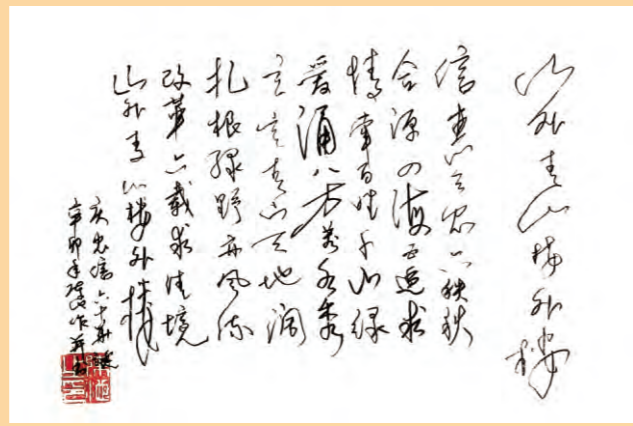 山外青山楼外楼
信惠公众六秩秋
合源四海追求
情牵百姓千山绿
爱涌八方万水秀
立天地阔
扎根绿野亦风流
改革六载求佳境
山外青山楼外楼
庆信六十华诞
辛卯年作并书